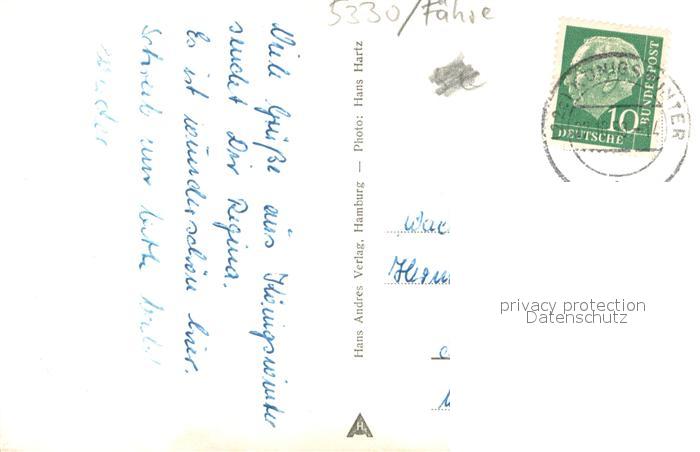 5330/Fähre
Viele Grüße aus Königswinter
sendet Dir Regina.
Es ist wunderschön hier.
Schreib mir bitte
wieder
Hans Andres Verlag, Hamburg — Photo: Hans Hartz
HA
KÖNIGSWINTER
10
BUNDESPOST
DEUTSCHE
privacy protection
Datenschutz